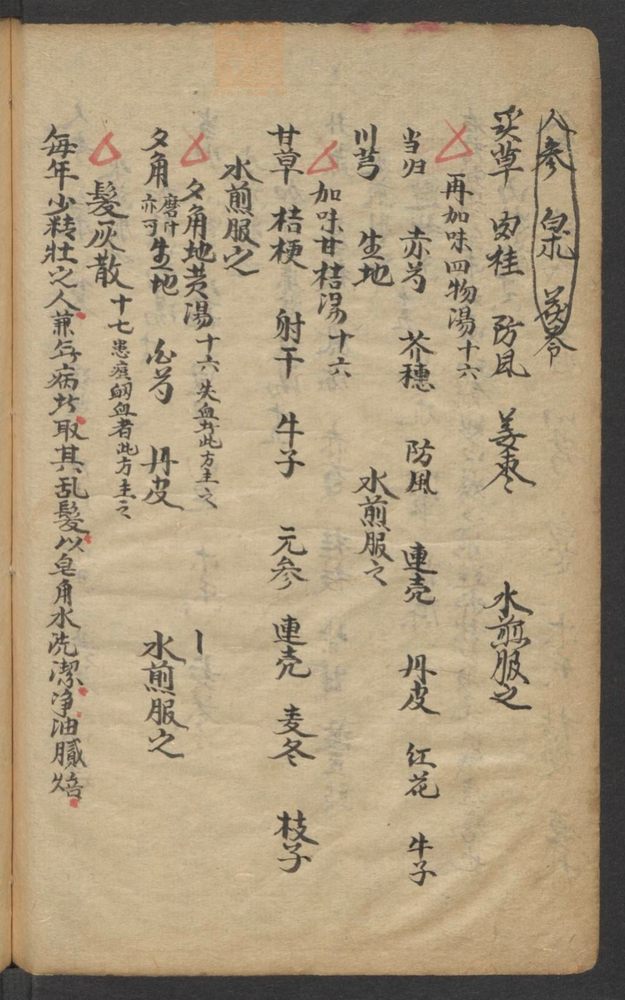 人参 白朮 茯苓
炙草 肉桂 防風 姜枣 水煎服之
再加味四物湯十六
当归 赤芍 芥穗 防風 連壳 丹皮 红花 牛子
川芎 生地 水煎服之
加味甘桔湯十六
甘草 桔梗 射干 牛子 元参 連壳 麦冬 枝子
水煎服之
夕角地黄湯十六失血者此方主之
夕角磨汁亦可 生地 白芍 丹皮 水煎服之
髮灰散十七患痘衂血者此方主之
每年少精壮之人兼無病者取其乱髮以皂角水洗潔净油膩焙